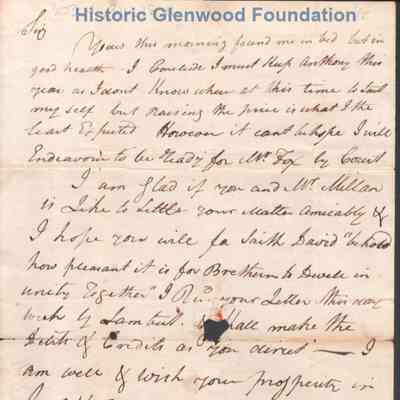 Historic Glenwood Foundation
Sir
Yours this morning found me in bed but in
good health I Conclude I must keep Anthony this
year as I dont know where at this time to suit
my self but Raising the price is what I the
least Expected However it cant be hope I will
Endeavour to be Ready for Mr. Fox by Court
I am Glad if you and Mr. Millan
is Like to Little your Matter Amicably &
I hope you will Saith David "behold
how pleasant it is for Brethern to Dwell in
unity Together" I Recd. your Letter this day
week by Lambert Shall make the
Debits & Credits as you direct — I
am well & wish your prosperity in